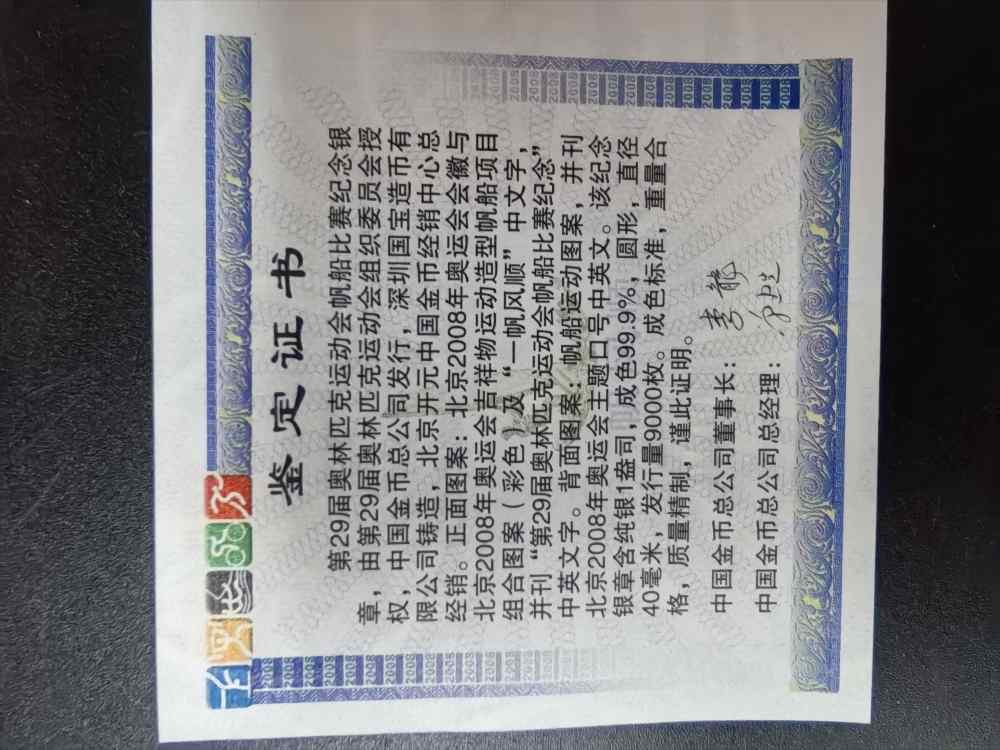 鉴定证书
第29届奥林匹克运动会帆船比赛纪念银
章，由第29届奥林匹克运动会组织委员会授
权，中国金币总公司发行，深圳国宝造币有
限公司铸造，北京开元中国金币经销中心总
经销。正面图案：北京2008年奥运会会徽与
北京2008年奥运会吉祥物运动造型帆船项目
组合图案（彩色）及“一帆风顺”中文字，
并刊“第29届奥林匹克运动会帆船比赛纪念”
中英文字。背面图案：帆船运动图案，并刊
北京2008年奥运会主题口号中英文。该纪念
银章含纯银1盎司，成色99.9%，圆形，直径
40毫米，发行量9000枚。成色标准，重量合
格，质量精制，谨此证明。
中国金币总公司董事长：
中国金币总公司总经理：